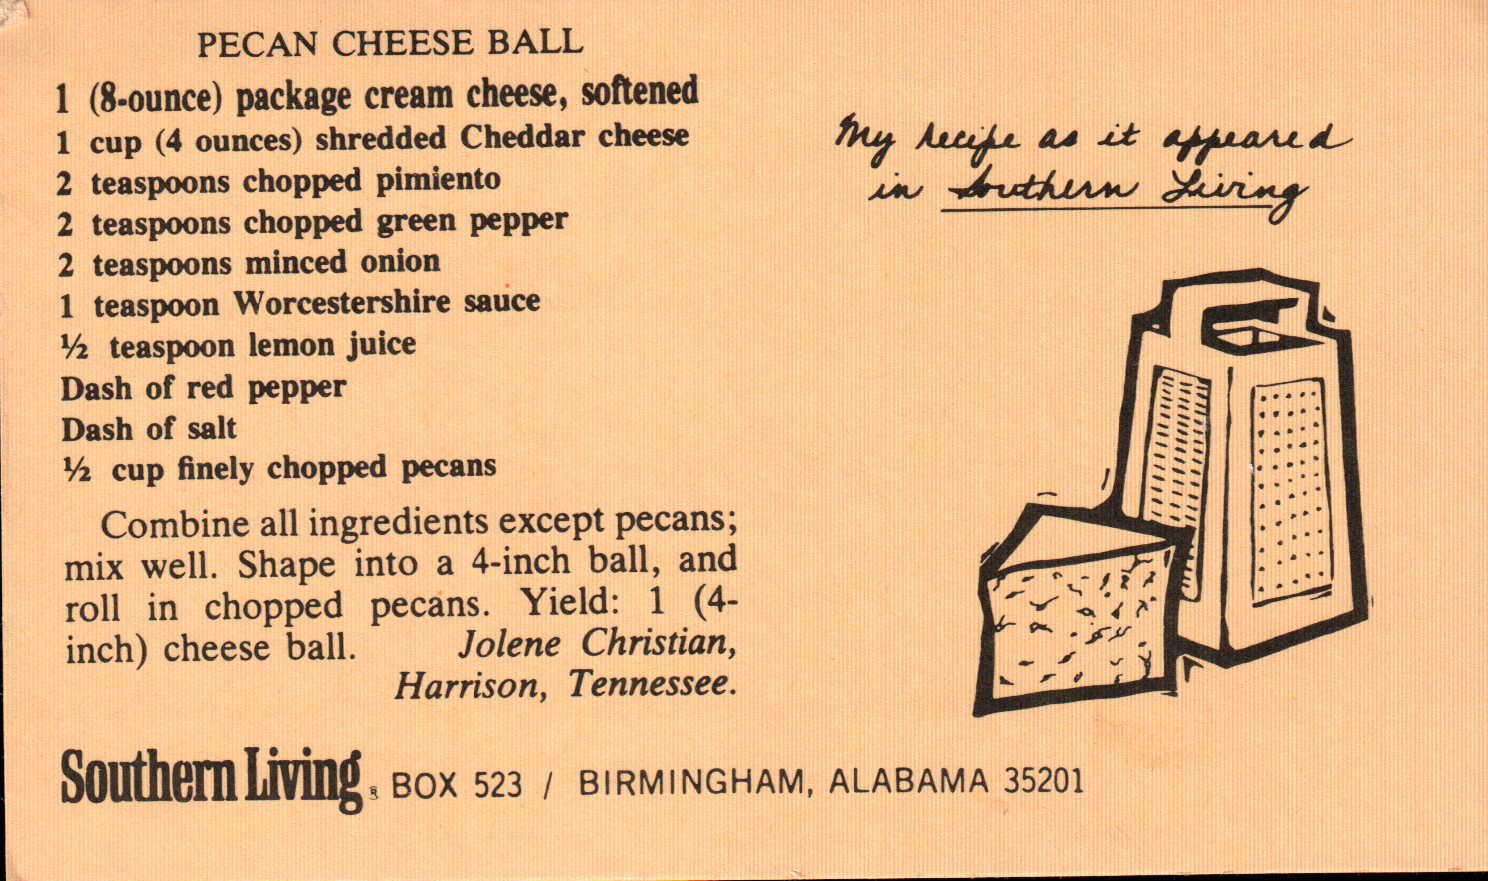 PECAN CHEESE BALL
1 (8-ounce) package cream cheese, softened
1 cup (4 ounces) shredded Cheddar cheese
2 teaspoons chopped pimiento
2 teaspoons chopped green pepper
2 teaspoons minced onion
1 teaspoon Worcestershire sauce
½ teaspoon lemon juice
Dash of red pepper
Dash of salt
½ cup finely chopped pecans
Combine all ingredients except pecans;
mix well. Shape into a 4-inch ball, and
roll in chopped pecans. Yield: 1 (4-
inch) cheese ball. Jolene Christian,
Harrison, Tennessee.
My recipe as it appeared
in Southern Living
Southern Living® BOX 523 / BIRMINGHAM, ALABAMA 35201